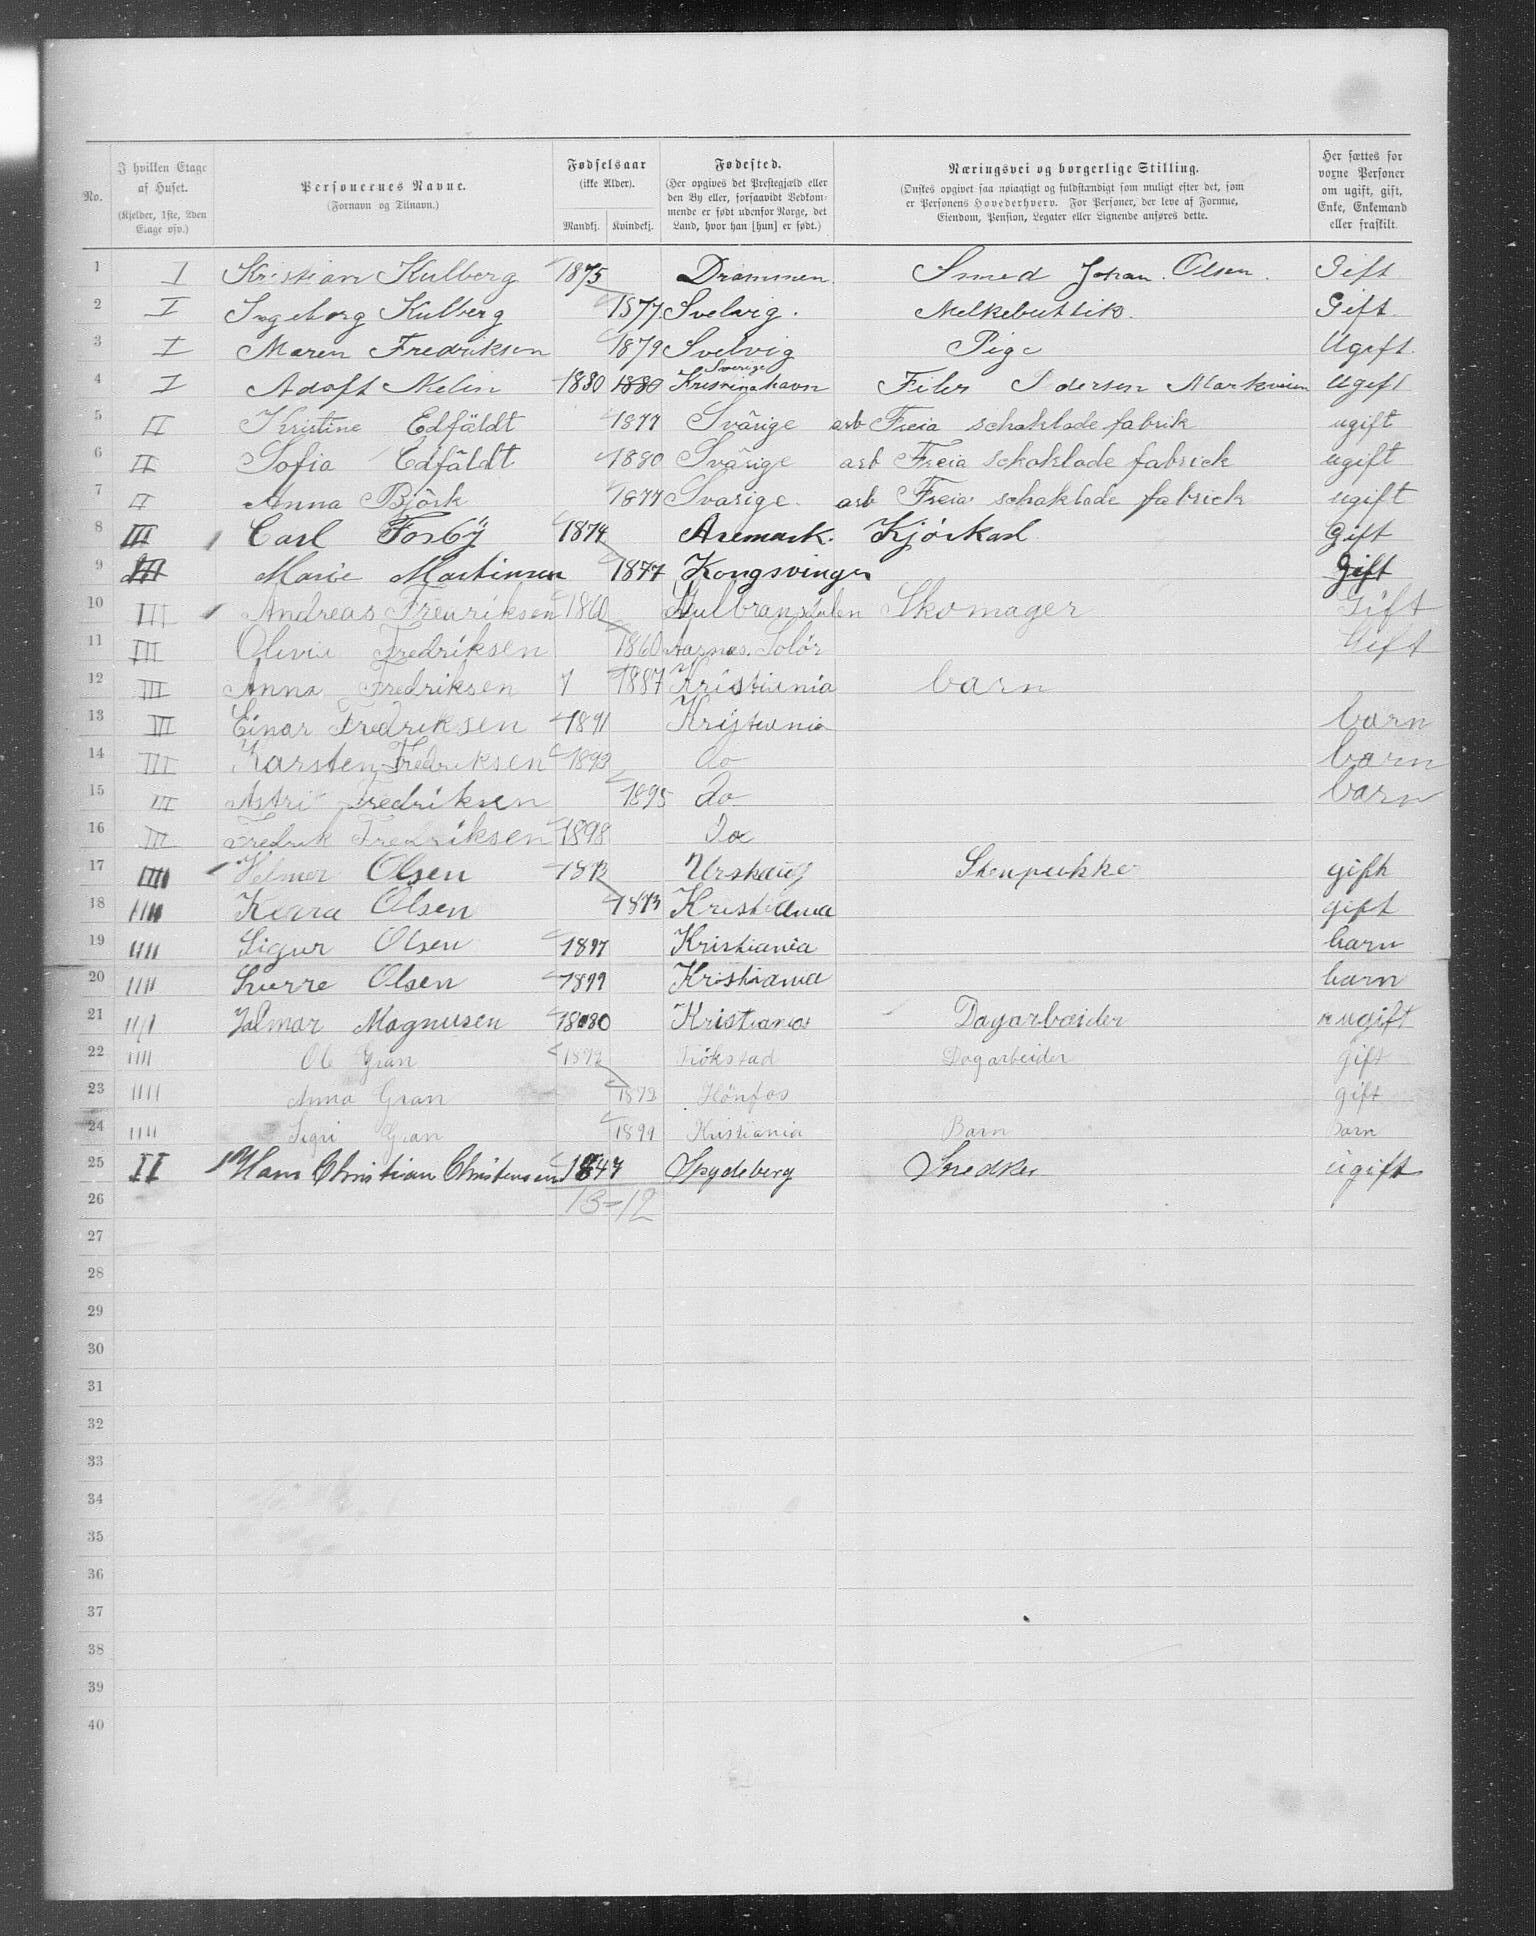 No. | I hvilken Etage af Huset. (Kjelder, 1ste, 2den Etage osv.) | Personernes Navne. (Fornavn og Tilnavn.) | Fødselsaar (ikke Alder). Mandkj. Kvindekj. | Fødested. (Her opgives det Prestegjæld eller den By eller, forsaavidt Vedkommende er født udenfor Norge, det Land, hvor han [hun] er født.) | Næringsvei og borgerlige Stilling. (Ønskes opgivet saa nøiagtigt og fuldstændigt som muligt efter det, som er Personens Hovederhverv. For Personer, der leve af Formue, Eiendom, Pension, Legater eller Lignende anføres dette. | Her sættes for voxne Personer om ugift, gift, Enke, Enkemand eller fraskilt.
1 I Kristian Kulberg 1875 Drammen Smed Johan Olsen. Gift
2 I Ingeborg Kulberg 1877 Svelvig. Melkebuttik. Gift.
3 I Maren Fredriksen 1879 Svelvig Pige Ugift.
4 I Adolf Melin 1880 1880 Sverige Kristinahavn Filer Markveien Ugift
5 II Kristine Edfäldt 1877 Svärige arb Freia schoklade fabrik ugift
6 II Sofia Edfäldt 1880 Svärige arb Freia schoklade fabrick ugift
7 II Anna Björk 1877 Svarige. arb Freia schoklade fabrick ugift
8 III Carl Forbÿ 1874 Aremark. Kjörkarl Gift
9 III Marie Martinsen 1877 Kongsvinger Gift
10 III Andreas Fredriksen 1860 Gulbransdalen Skomager Gift
11 III Olivia Fredriksen 1860 Aarnes Solör Gift
12 III Anna Fredriksen 1 1887 Kristiania barn
13 III Einar Fredriksen 1891 Kristiania barn
14 III Karsten Fredriksen 1893 do barn
15 III Astri Fredriksen 1895 do barn
16 III Fredrik Fredriksen 1898 do
17 IIII Olsen 1873 Urskoug Stenpukker gift
18 IIII Klara Olsen 1873 Kristiania gift
19 IIII Sigur Olsen 1897 Kristiania barn
20 IIII Sverre Olsen 1899 Kristiania barn
21 IIII Jalmar Magnusen 1880 Kristiania Dagarbeider ugift
22 IIII Ole Gran 1872 Dagarbeider gift
23 IIII Anna Gran 1872 Hönfos gift
24 IIII Sigri Gran 1899 Kristiania Barn Barn
25 II Hans Christian Christensen 1847 Spydeberg Snedker ugift
26 13-12
27
28
29
30
31
32
33
34
35
36
37
38
39
40